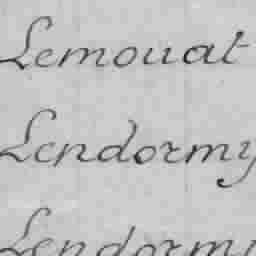 Lemouat
Lendormy
Lendormy